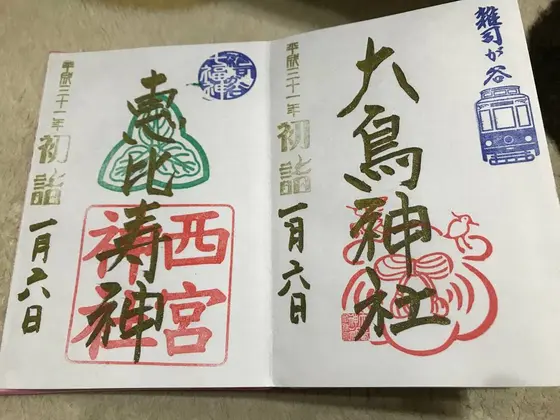 雑司が谷
大鳥神社
平成三十一年
初詣
一月六日
七福神
恵比寿神
西宮
神社
平成三十一年
初詣
一月六日